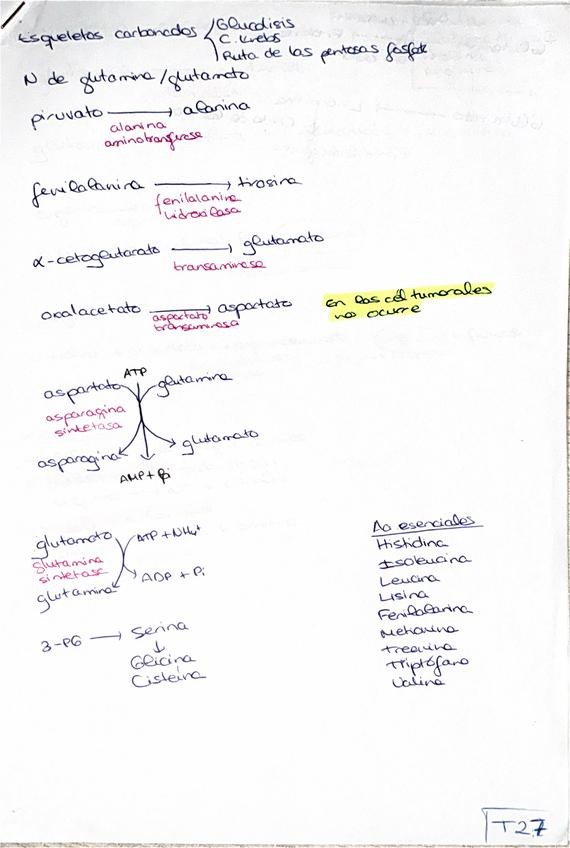 Esqueletos carbonados Glucolisis
C. Krebs
Ruta de las pentosas fosfato
N de glutamina/glutamato
piruvato → alanina
alanina
aminotransferasa
fenilalanina → tirosina
fenilalanina
hidroxilasa
α-cetoglutarato → glutamato
transaminasa
oxalacetato → aspartato
aspartato
transaminasa
en las cél tumorales
no ocurre
ATP
aspartato glutamina
asparagina
sintetasa
asparagina glutamato
AMP + Pi
glutamato ATP + NH4+
glutamina
sintetasa
glutamina ADP + Pi
3-PG → Serina
↓
Glicina
Cisteína
Aa esenciales
Histidina
Isoleucina
Leucina
Lisina
Fenilalanina
Metionina
Treonina
Triptófano
Valina
T27